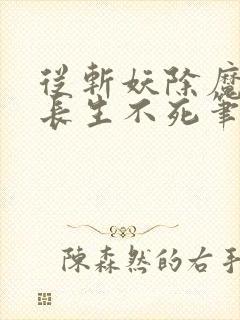 從斬妖除魔
長生不死筆
陳森然的右手